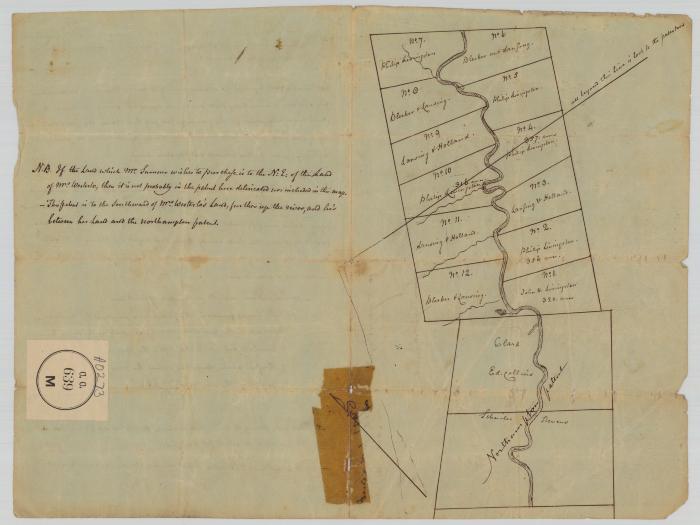 N.B. If the Land which Mr. Sumner wishes to purchase is to the N.E. of the Land
of Mrs. Westerlo, then it is not probably in the patent here delineated nor included in the map.
– This patent is to the Southward of Mrs. Westerlo's Land, further up the river, and lies
between her Land and the Northampton patent.
A0273
a.a.
639
M
No. 7.
Philip Livingston
No. 6
Bleeker and Lansing.
No. 8
Bleeker & Lansing.
No. 5
Philip Livingston.
all beyond this line is lost to the patentees
No. 9
Lansing & Holland.
No. 4.
327. acres
Philip Livingston.
No. 10
Bleeker
316 acres
No. 3.
Lansing & Holland.
No. 11.
Lansing & Holland.
No. 2.
Philip Livingston.
324 acres
No. 12.
Bleeker & Lansing.
No. 1.
John H. Livingston
320. acres
Clark
Ed. Collins
Northampton patent